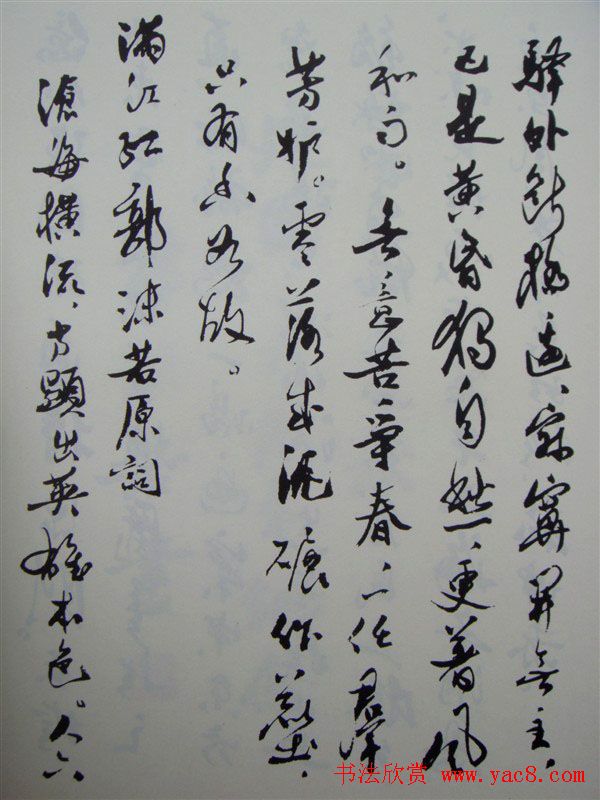 驛外断橋邊、寂寞開無主、
已是黄昏獨自愁、更著風
和雨。無意苦争春、一任群
芳妒。零落成泥碾作塵、
只有香如故。
满江红郭沫若原詞
滄海横流、方顯出英雄本色。人六
书法欣赏 www.yac8.com